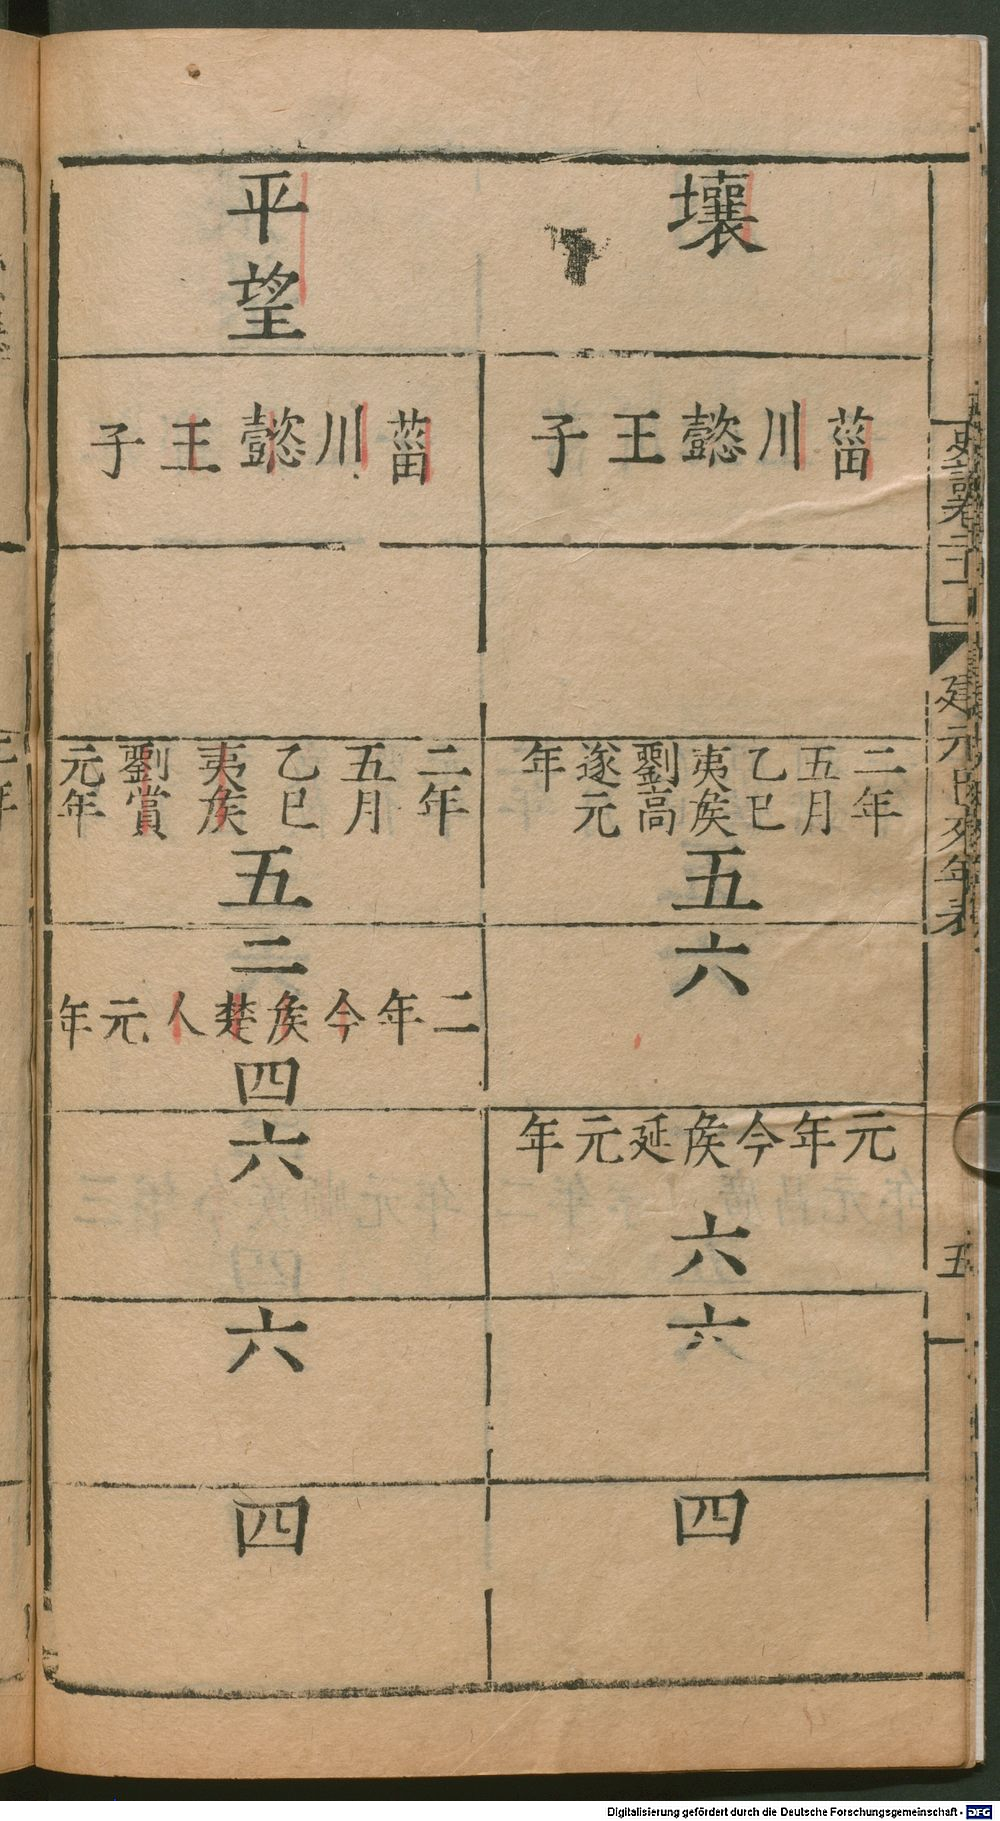 壤
菑川懿王子
二年五月乙巳夷矦劉高遂元年
五
六
元年今矦延元年
六
六
四
平望
菑川懿王子
二年五月乙巳夷矦劉賞元年
五
二
二年今矦楚人元年
四
六
六
四
建元
年表
五
Digitalisierung gefördert durch die Deutsche Forschungsgemeinschaft - DFG